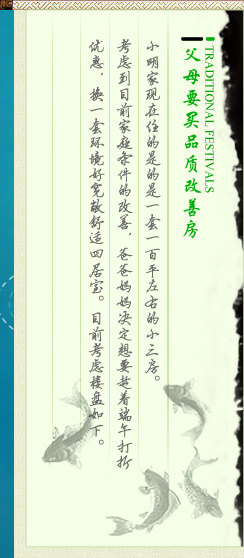 TRADITIONAL FESTIVALS
父母要买品质改善房
小明家现在住的是的是一套一百平左右的小三房。
考虑到目前家庭条件的改善，爸爸妈妈决定想要趁着端午打折
优惠，换一套环境好宽敞舒适四居室。目前考虑楼盘如下。